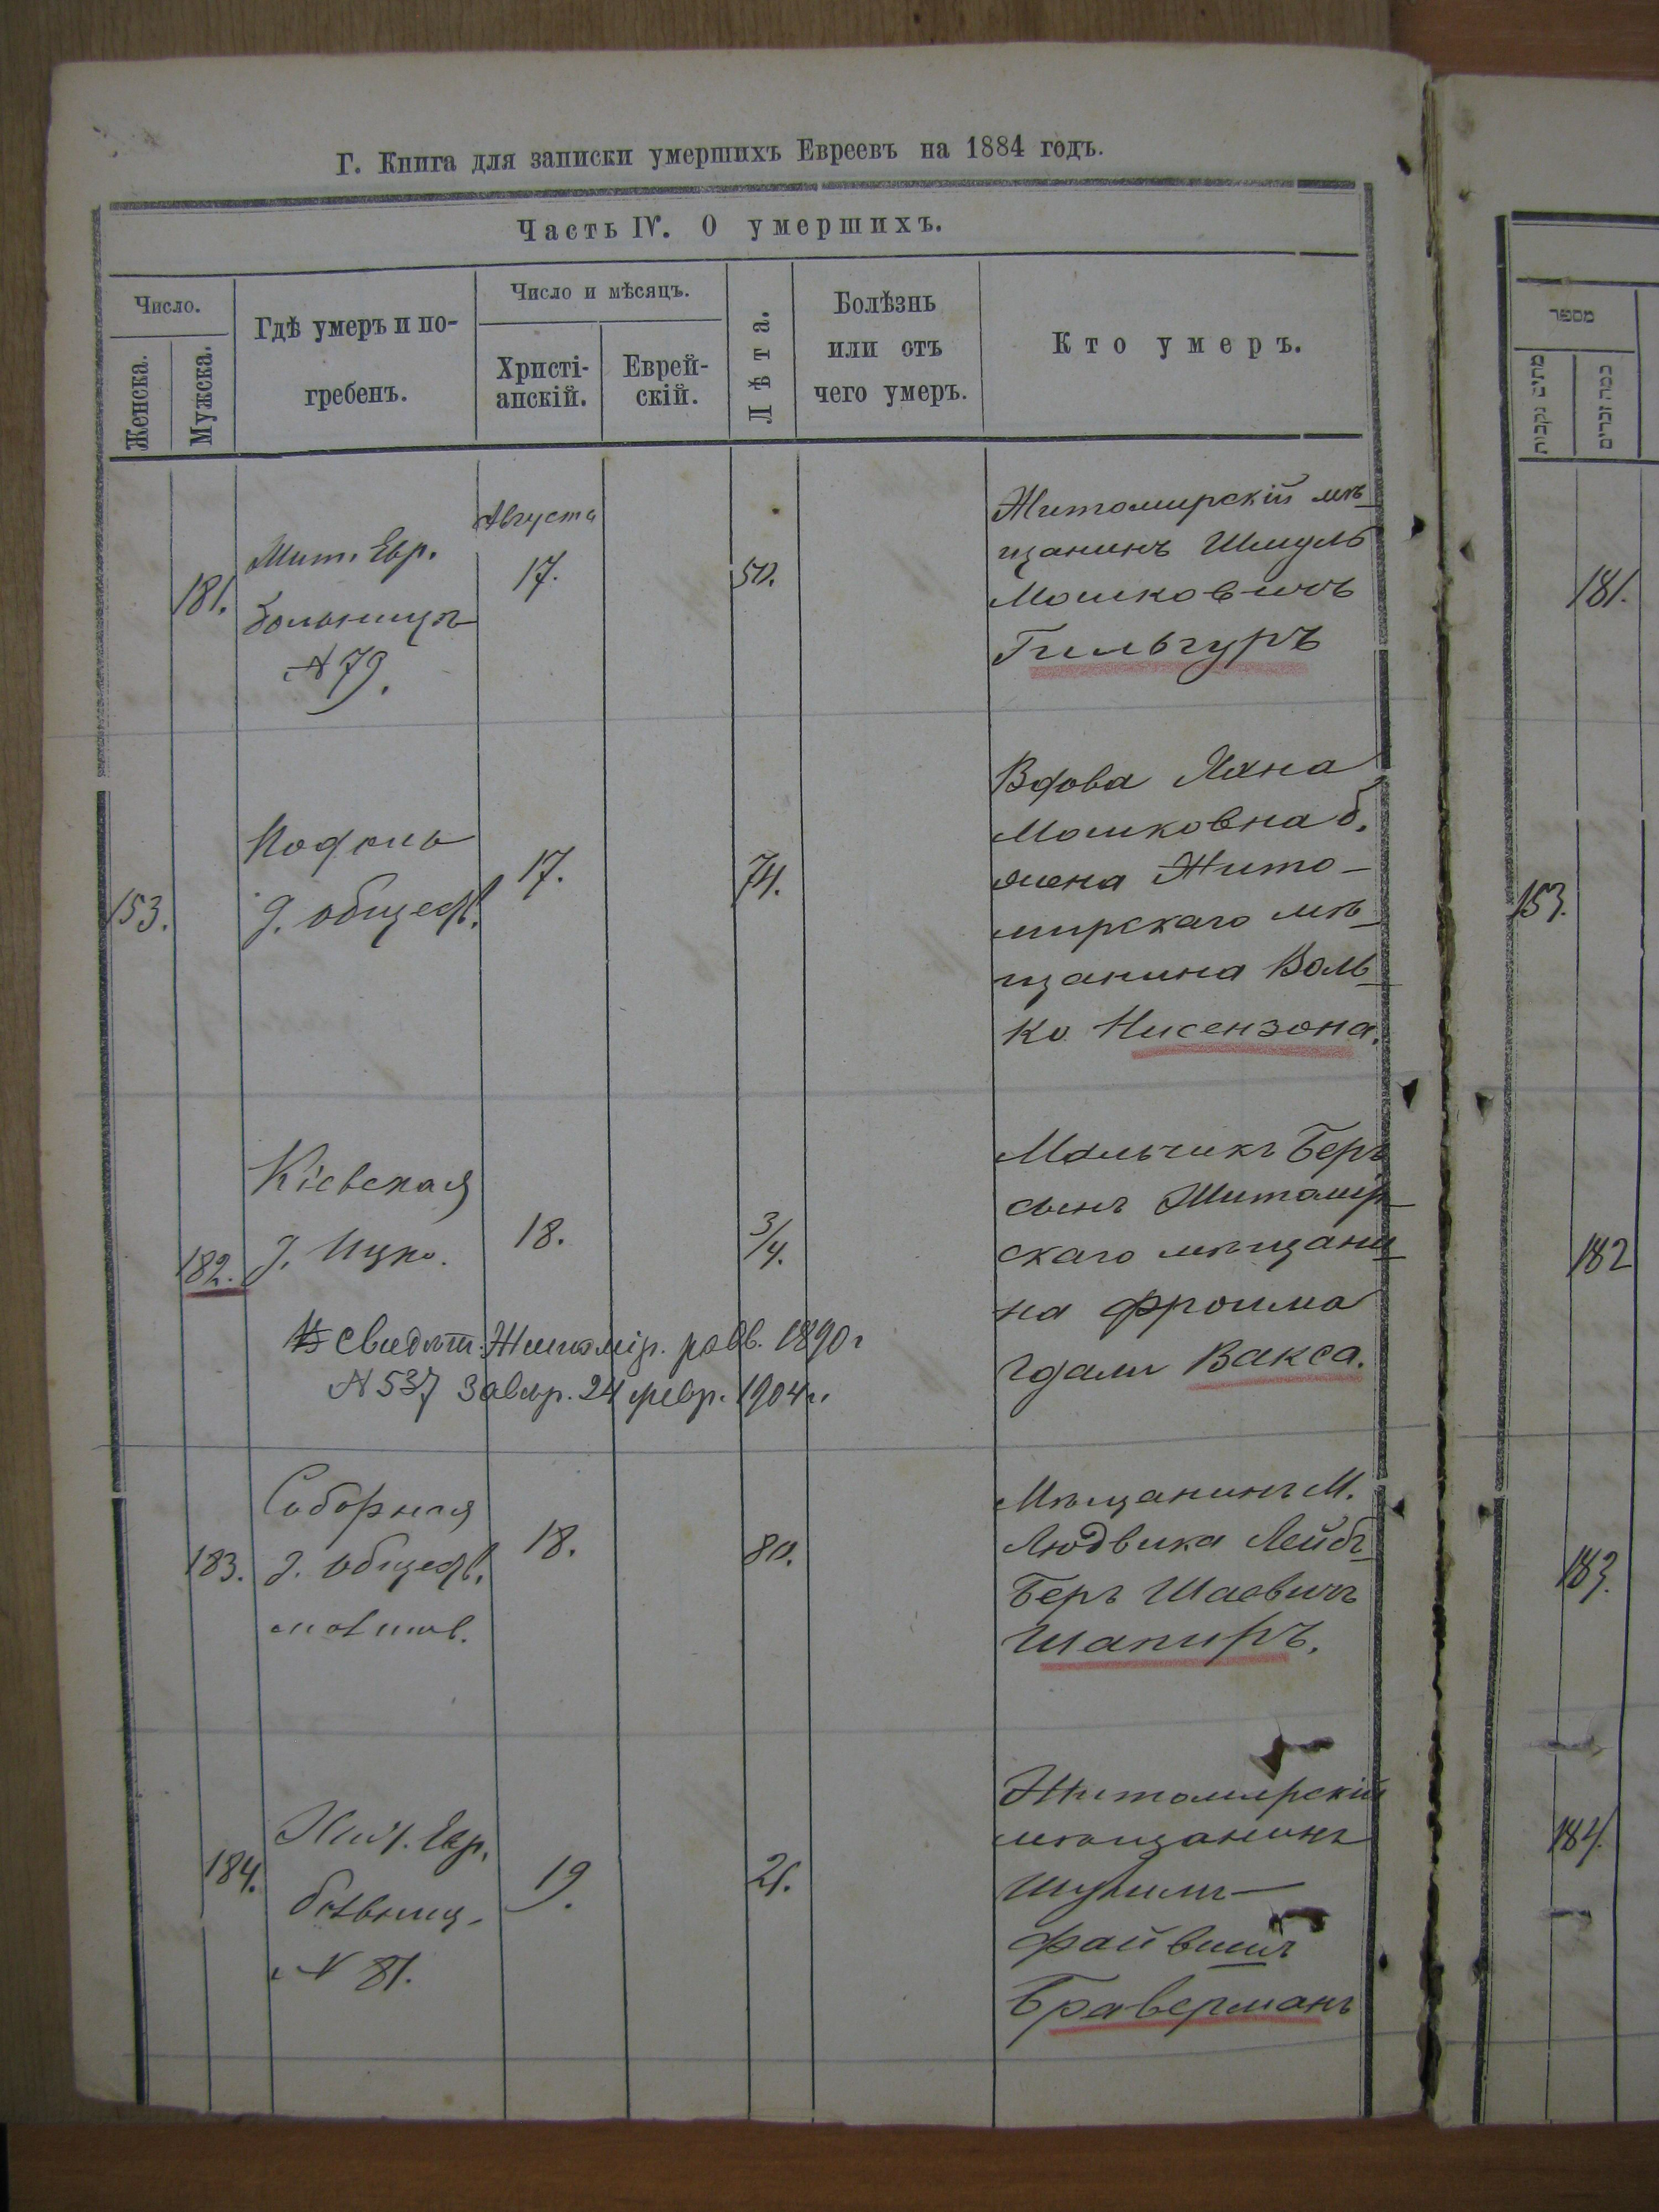 Г. Книга для записки умершихъ Евреевъ на 1884 годъ.
Часть IV. О умершихъ.
Число.
Женска.
Мужска.
Гдѣ умеръ и по-
гребенъ.
Число и мѣсяцъ.
Христі-
анскій.
Еврей-
скій.
Лѣта.
Болѣзнь
или отъ
чего умеръ.
Кто умеръ.
מספר
מתים נקבות
181.
Жит. Евр.
больницѣ
№ 79.
Августа
17.
50.
Житомирскій мѣ-
щанинъ Шмуль
Мошковичъ
Гильгуръ
181.
153.
Подолъ
д. общест.
17.
74.
Вдова Хана
Мошковна б.
жена Жито-
мирскаго мѣ-
щанина Воль-
ко Нисензона.
153.
182.
Кіевская
д. Ицко.
18.
3/4.
Мальчикъ Беръ
сынъ Житомир-
скаго мѣщани-
на Фроима
Гдали Вакса.
свидѣт. Житомір. равв. 1890 г
№ 537 завѣр. 24 февр. 1904 г.
182
183.
Соборная
д. общест.
18.
80.
Мѣщанинъ М.
Людвика Лейбъ-
Беръ Шаевичъ
Шапиръ.
183.
184.
Жит. Евр.
больниц.
№ 81.
19.
21.
Житомирскій
мѣщанинъ
Файвишъ
Браверманъ
184.